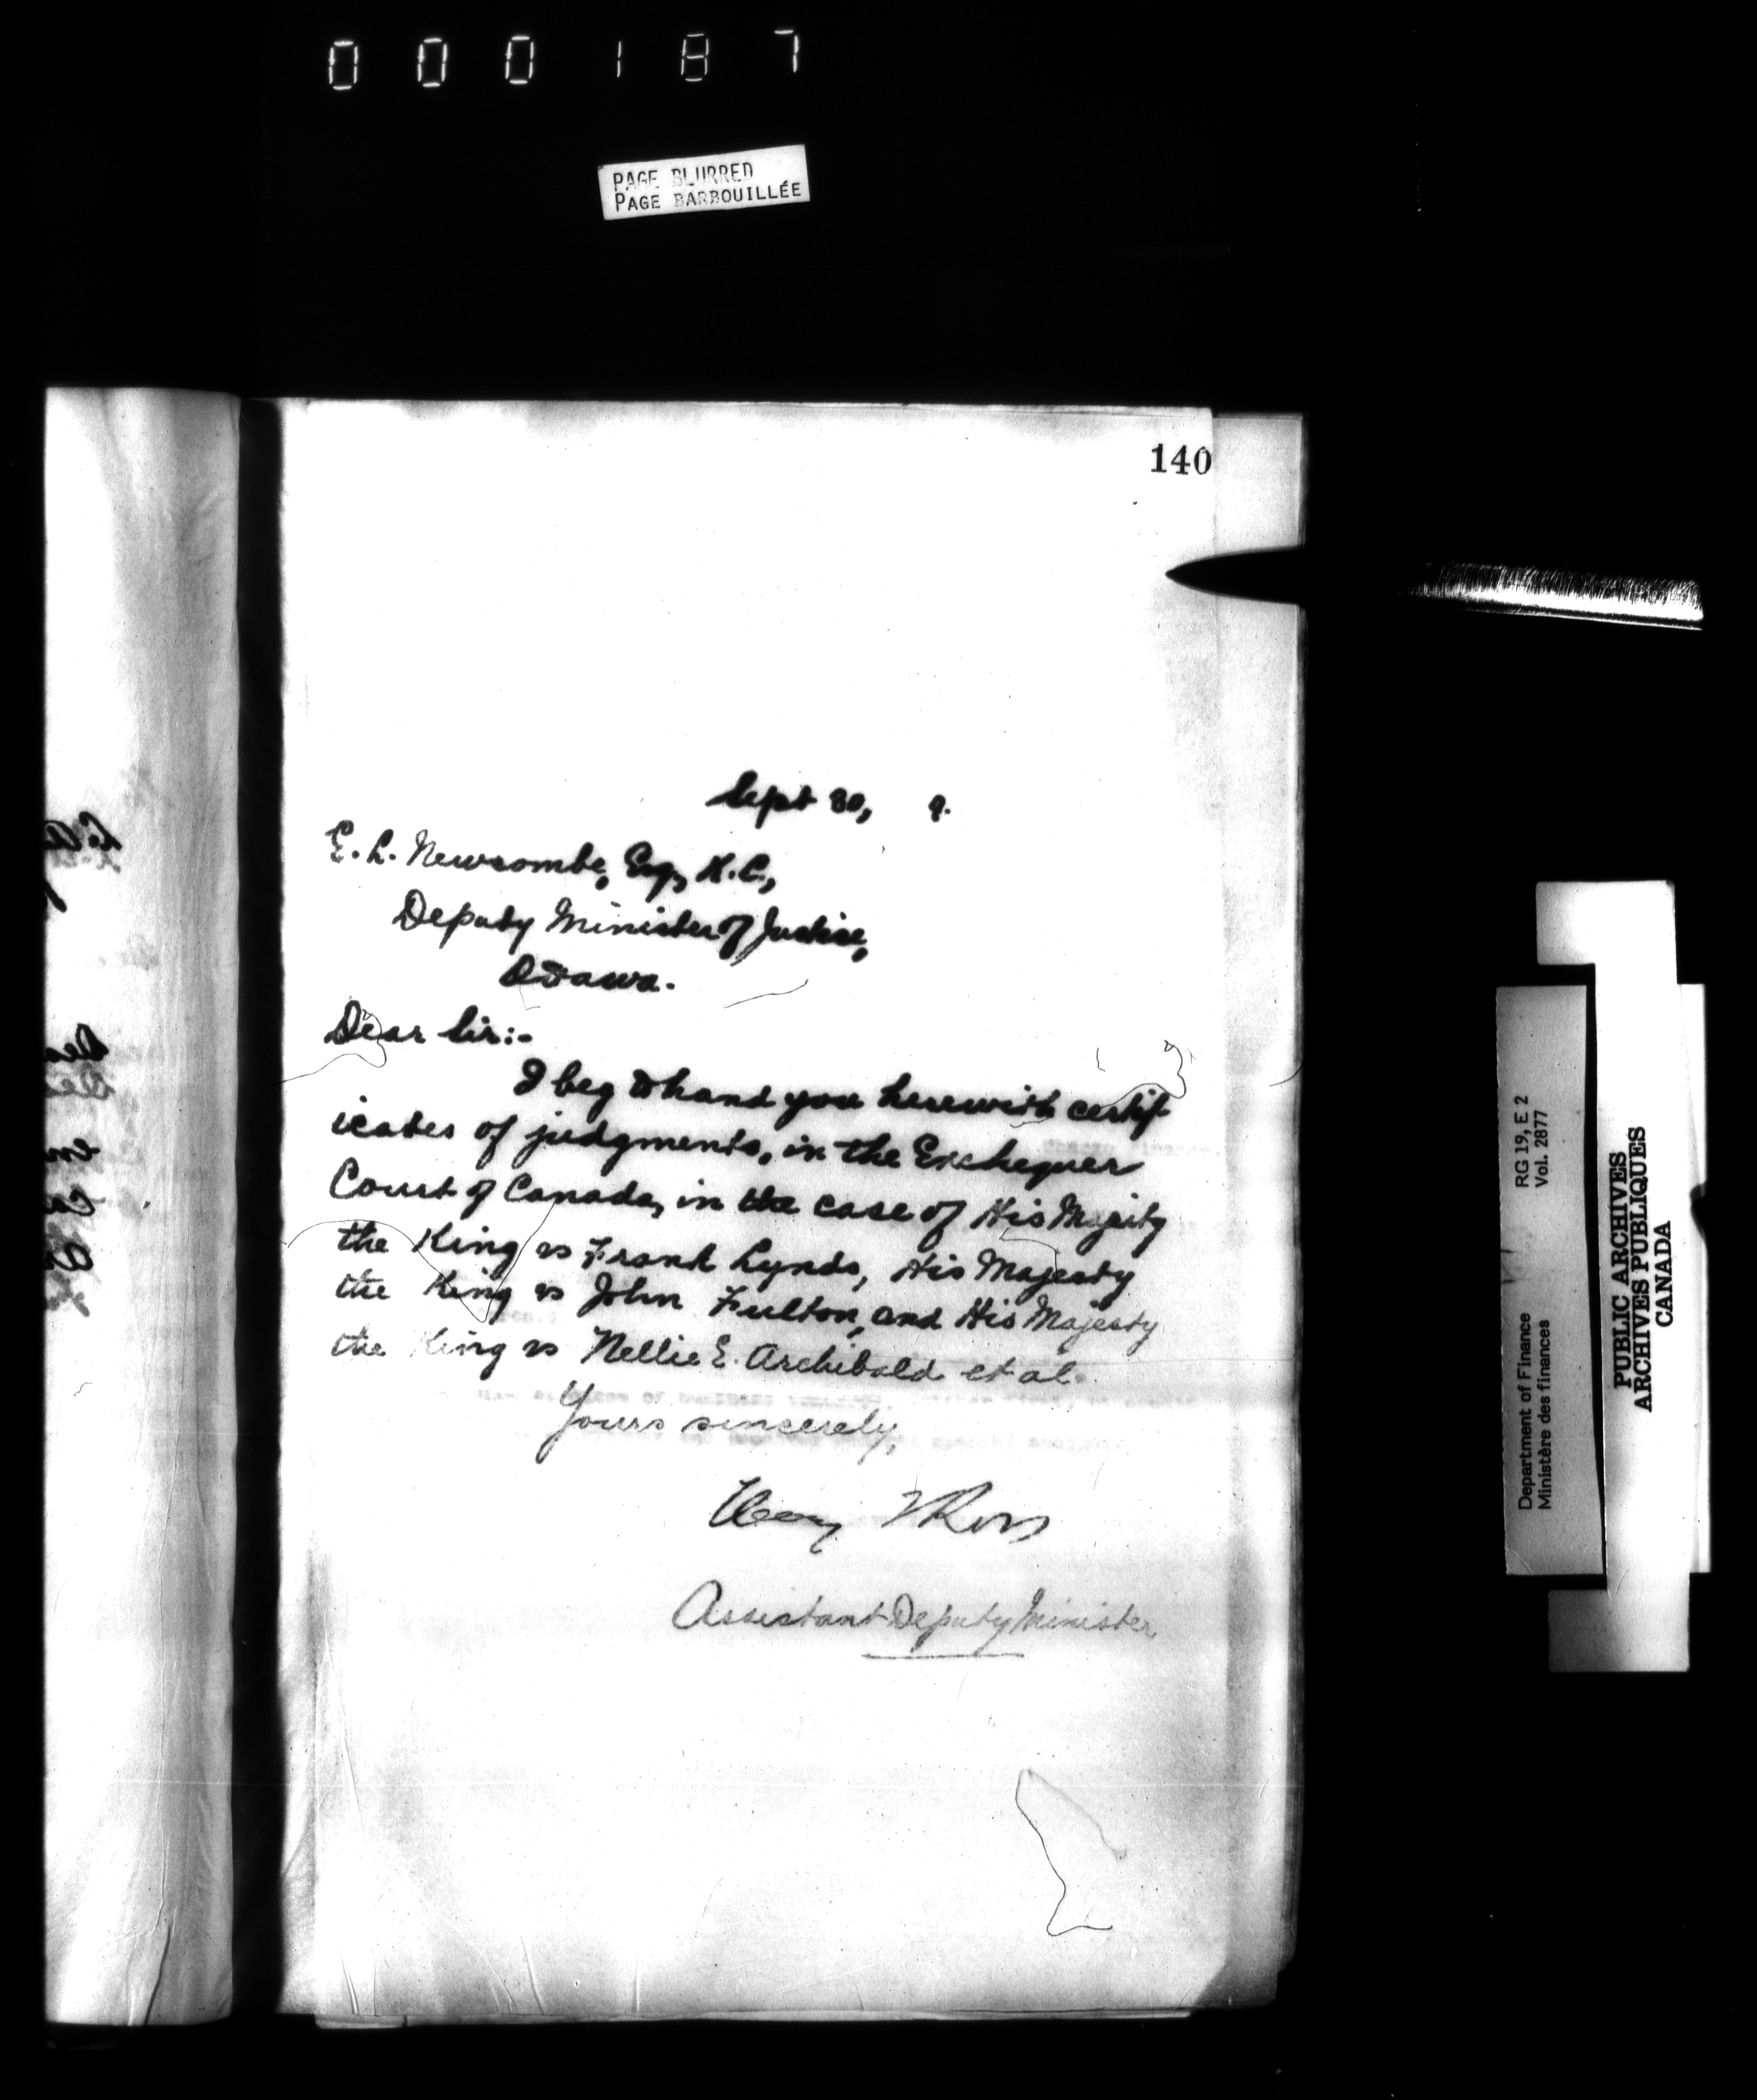 000187
PAGE BLURRED
PAGE BARBOUILLÉE
140
Sept 30, 9.
E. L. Newcombe, Esq, K.C.,
Deputy Minister of Justice,
Ottawa.
Dear Sir:-
I beg to hand you herewith certif
icates of judgments, in the Exchequer
Court of Canada, in the case of His Majesty
the King vs Frank Lynds, His Majesty
the King vs John Fulton, and His Majesty
the King vs Nellie E. Archibald et al.
Yours sincerely,
Henry T Ross
Assistant Deputy Minister
RG 19, E 2
Vol. 2877
Department of Finance
Ministère des finances
PUBLIC ARCHIVES
ARCHIVES PUBLIQUES
CANADA